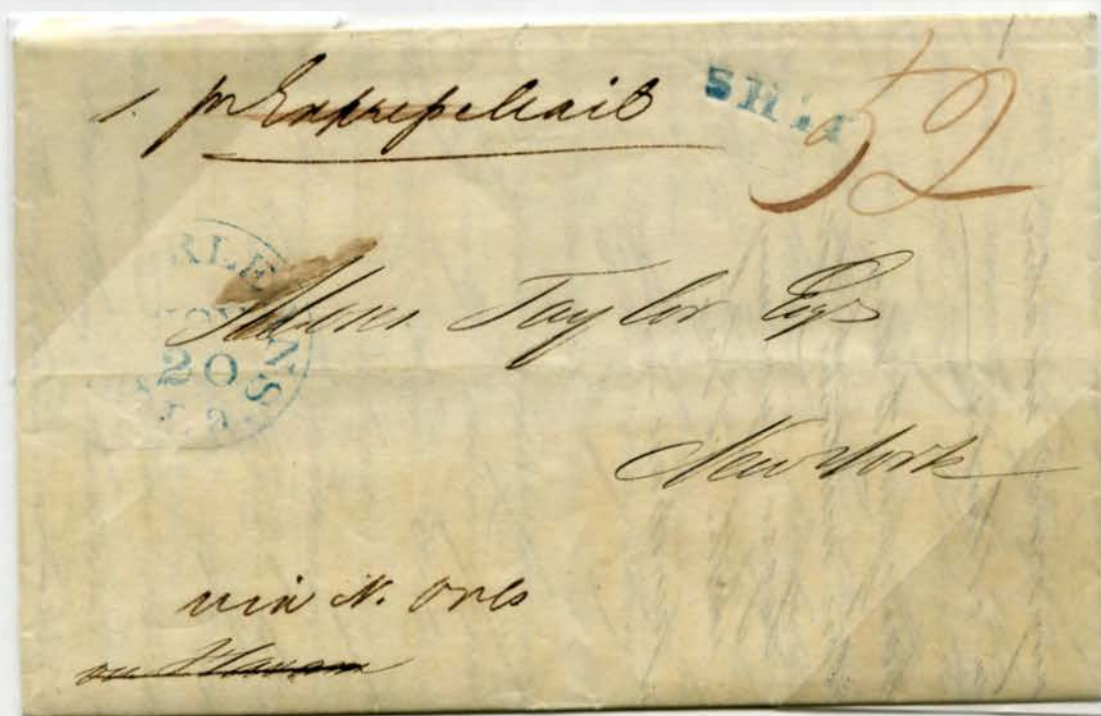 pr Express Mail
SHIP
52
NOV
20
La
Moses Taylor Esqr
New York
via N. Orls